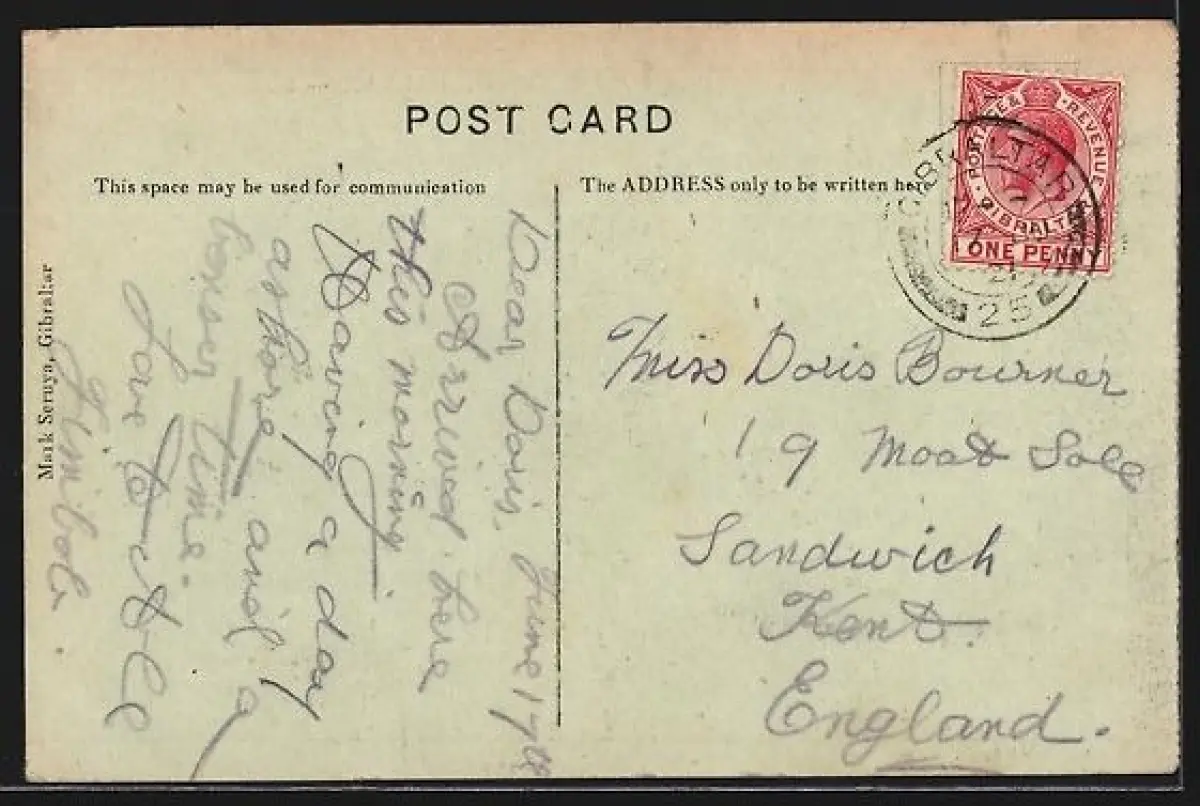 POST CARD
This space may be used for communication
The ADDRESS only to be written here
Mark Seruya, Gibraltar
POSTAGE & REVENUE
GIBRALTAR
ONE PENNY
GIBRALTAR
21
25
Dear Doris. June 17th
Arrived here
this morning
Having a day
ashore and a
time.
love to all
Miss Doris Bourner
19 Moat Sole
Sandwich
Kent
England.